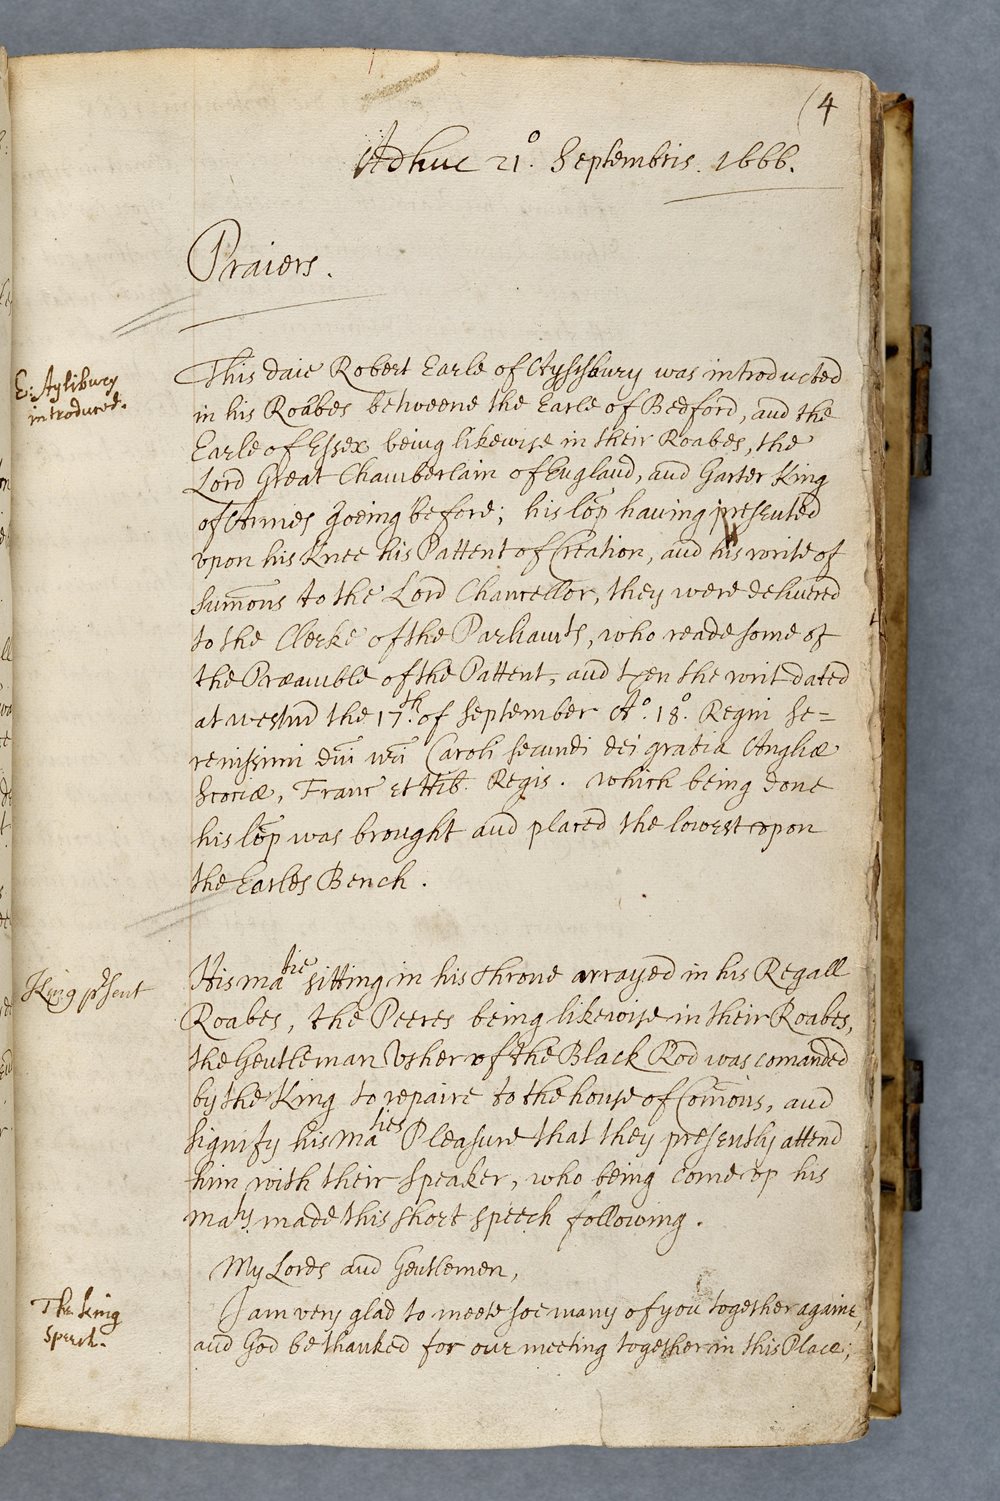 (4
Adhuc 21º. Septembris. 1666.
Praiers.
E: Aylibury
introduced.
This daie Robert Earle of Aylisbury was introducted
in his Roabes betweene the Earle of Bedford, and the
Earle of Essex being likewise in their Roabes, the
Lord Great Chamberlain of England, and Garter King
of Armes goeing before; his lo͞p having presented
vpon his Knee his Pattent of Creation, and his write of
sum̄ons to the Lord Chancellor, they were delivered
to the Clerke of the Parliamts, who reade some of
the Præamble of the Pattent, and then the writ dated
at Westm̄ the 17th. of September Aº. 18º. Regni Se=
renissimi dn̄i nr̄i Caroli secundi dei gratia Angliæ
Scotiæ, Franc et Hib. Regis. which being done
his lo͞p was brought and placed the lowest vpon
the Earles Bench.
King p̄sent
His Matie sitting in his throne arrayed in his Regall
Roabes, the Peeres being likewise in their Roabes,
the Gentleman Vsher of the Black Rod was comanded
by the King to repaire to the house of Com̄ons, and
signify his Maties Pleasure that they presently attend
him with their speaker, who being come vp his
Maty. made this short speech following.
My Lords and Gentlemen,
The king
speech.
I am very glad to meete soe many of you together againe,
and God be thanked for our meeting together in this Place;